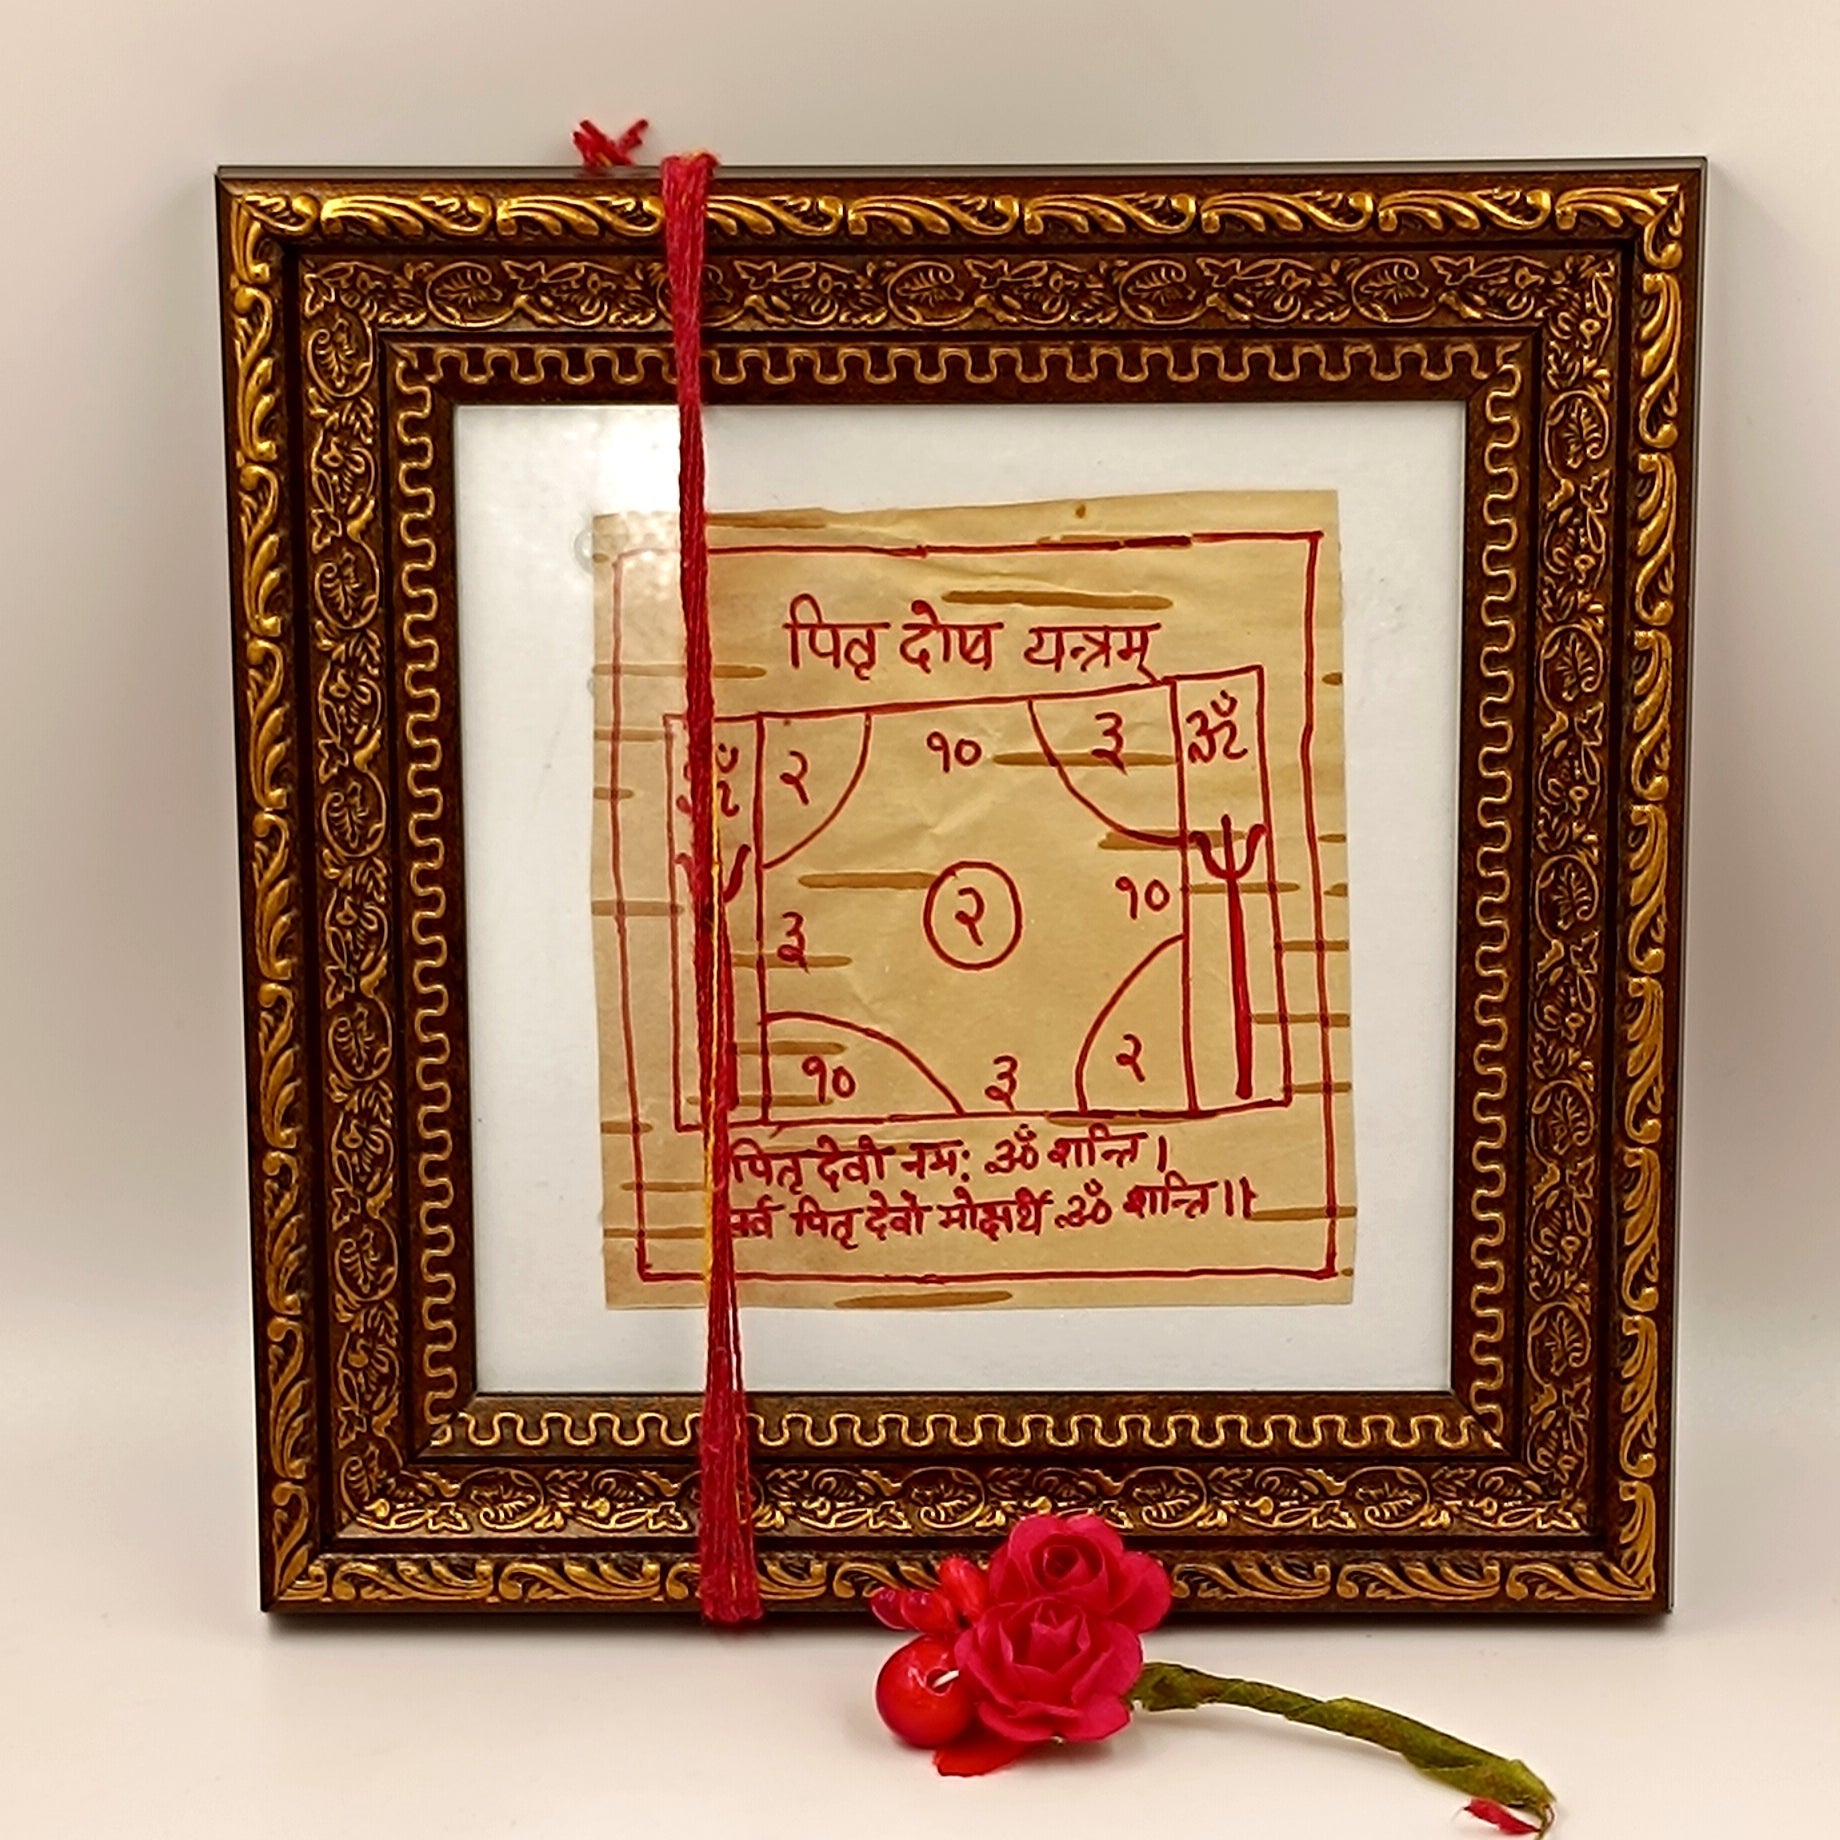 पितृ दोष यन्त्रम्
ॐ २ १० ३ ॐ
३ २ १०
१० ३ २
पितृ देवो नमः ॐ शान्ति।
पितृ देवो मोक्षार्थे ॐ शान्ति॥